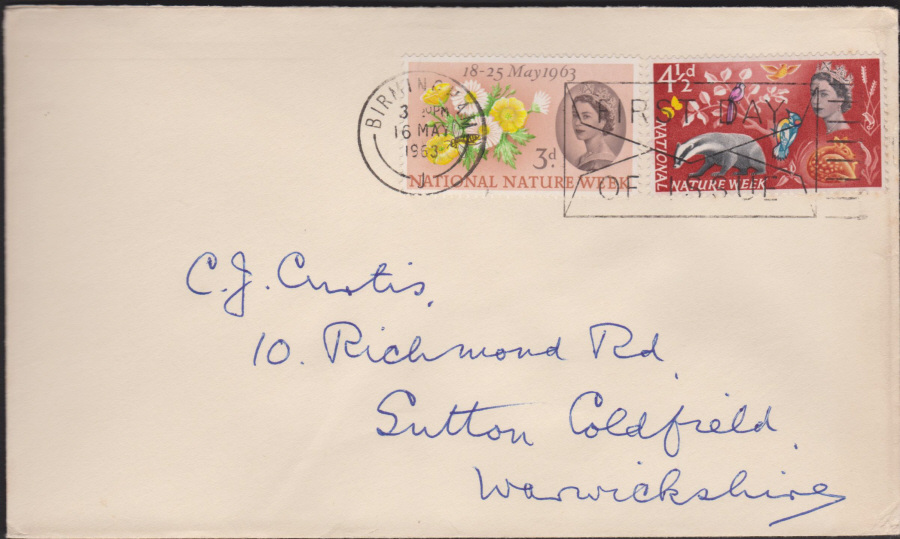 18-25 May 1963
3d.
NATIONAL NATURE WEEK
4½d
NATIONAL
NATURE WEEK
BIRMINGHAM
16 MAY
1963
1
FIRST DAY
OF ISSUE
C. J. Curtis,
10. Richmond Rd
Sutton Coldfield
Warwickshire